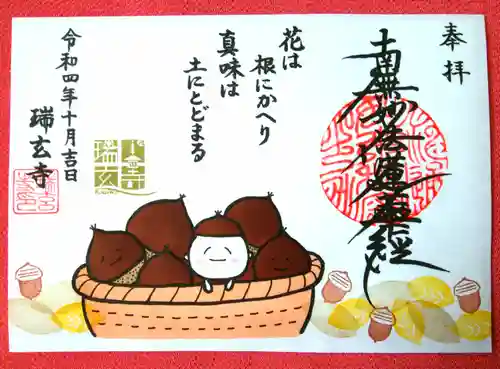 奉拝
南無妙法蓮華経
花は
根にかへり
真味は
土にとどまる
令和四年十月吉日
瑞玄寺
瑞玄